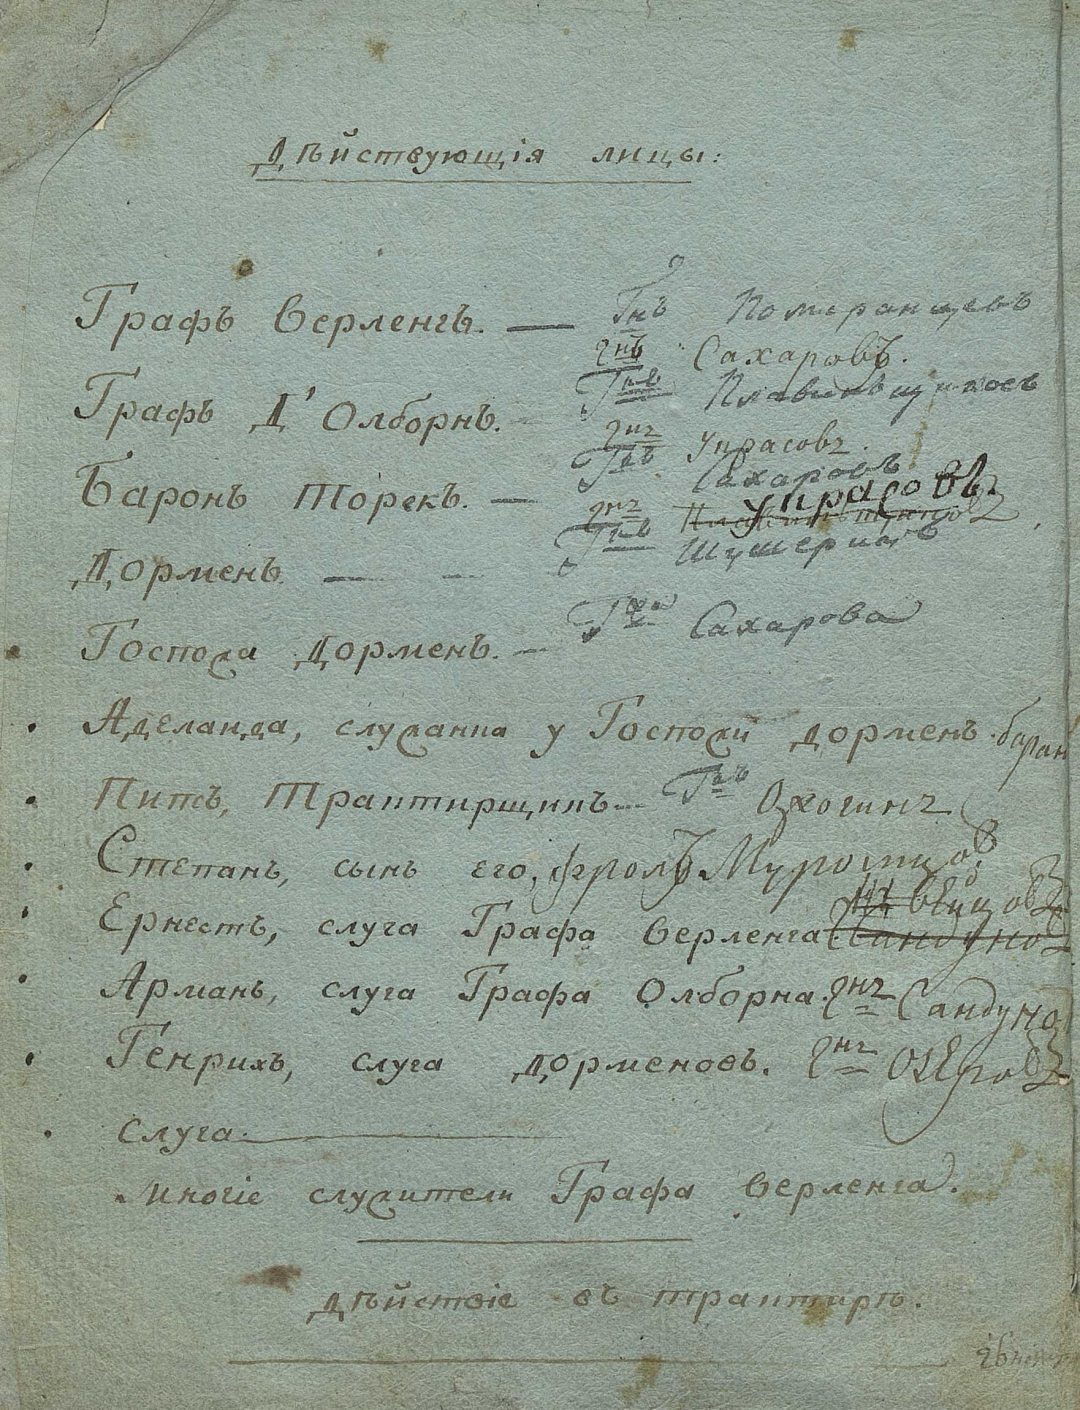 Дѣйствующія лицы:
Графъ Верленгъ. — Гнъ Померанцевъ
гнъ Сахаровъ.
Графъ Д'Олборнъ. — Гнъ Плавильщиковъ
гнъ Украсовъ.
Баронъ Торекъ. — Гнъ Сахаровъ
Украсовъ.
гнъ Плавильщиковъ
Дорменъ. — — Гнъ Шушеринъ
Госпожа Дорменъ. — Гжа Сахарова
Аделаида, служанка у Госпожи Дорменъ. баран
Питъ, Трактирщикъ — Гнъ Ожогинъ
Степанъ, сынъ его, фролъ Муромцовъ
Ернестъ, слуга Графа Верленга. Сандуновъ
Арманъ, слуга Графа Олборна. гнъ Сандуно
Генрихъ, слуга Дорменовъ. гнъ Озеровъ
Слуга.
Многіе служители Графа Верленга.
Дѣйствіе въ трактирѣ.